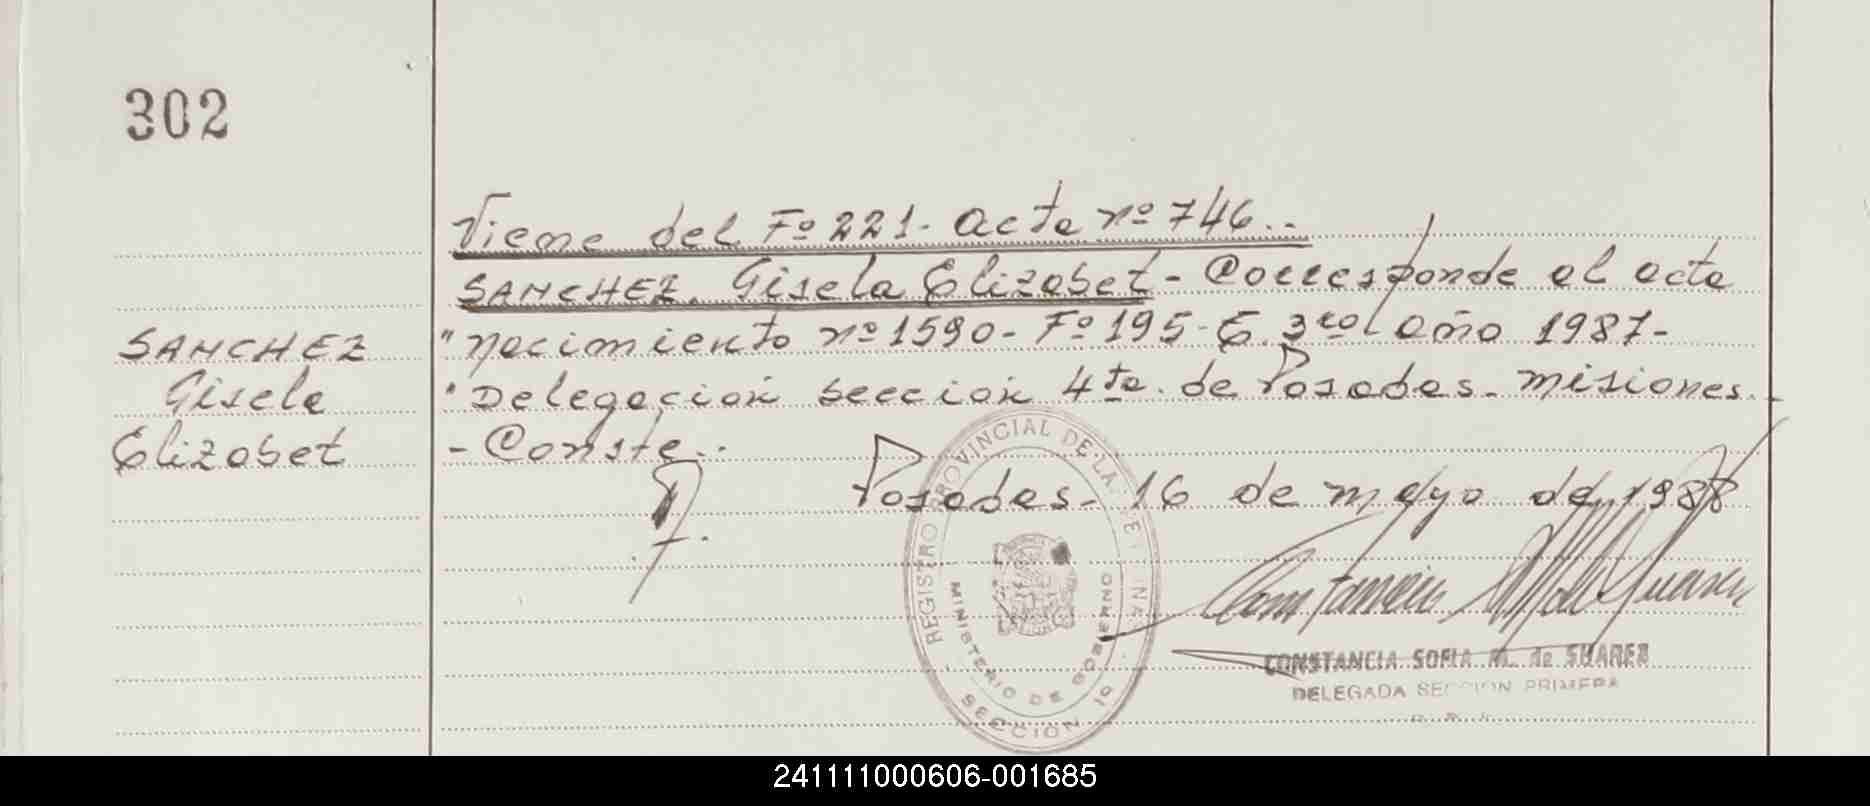 302
Viene del Fº 221. acta nº 746..
SANCHEZ, Gisela Elizabet - Corresponde al acta
SANCHEZ
Gisela
Elizabet
"nacimiento nº 1590 - Fº 195 - E. 3ro año 1987-
"Delegación sección 4ta. de Posadas - misiones.-
- Conste..
Posadas - 16 de mayo de 1988
REGISTRO PROVINCIAL DE LA
MINISTERIO DE GOBIERNO
SECCION 1º
CONSTANCIA SOFIA M. de SUAREZ
DELEGADA SECCION PRIMERA
241111000606-001685